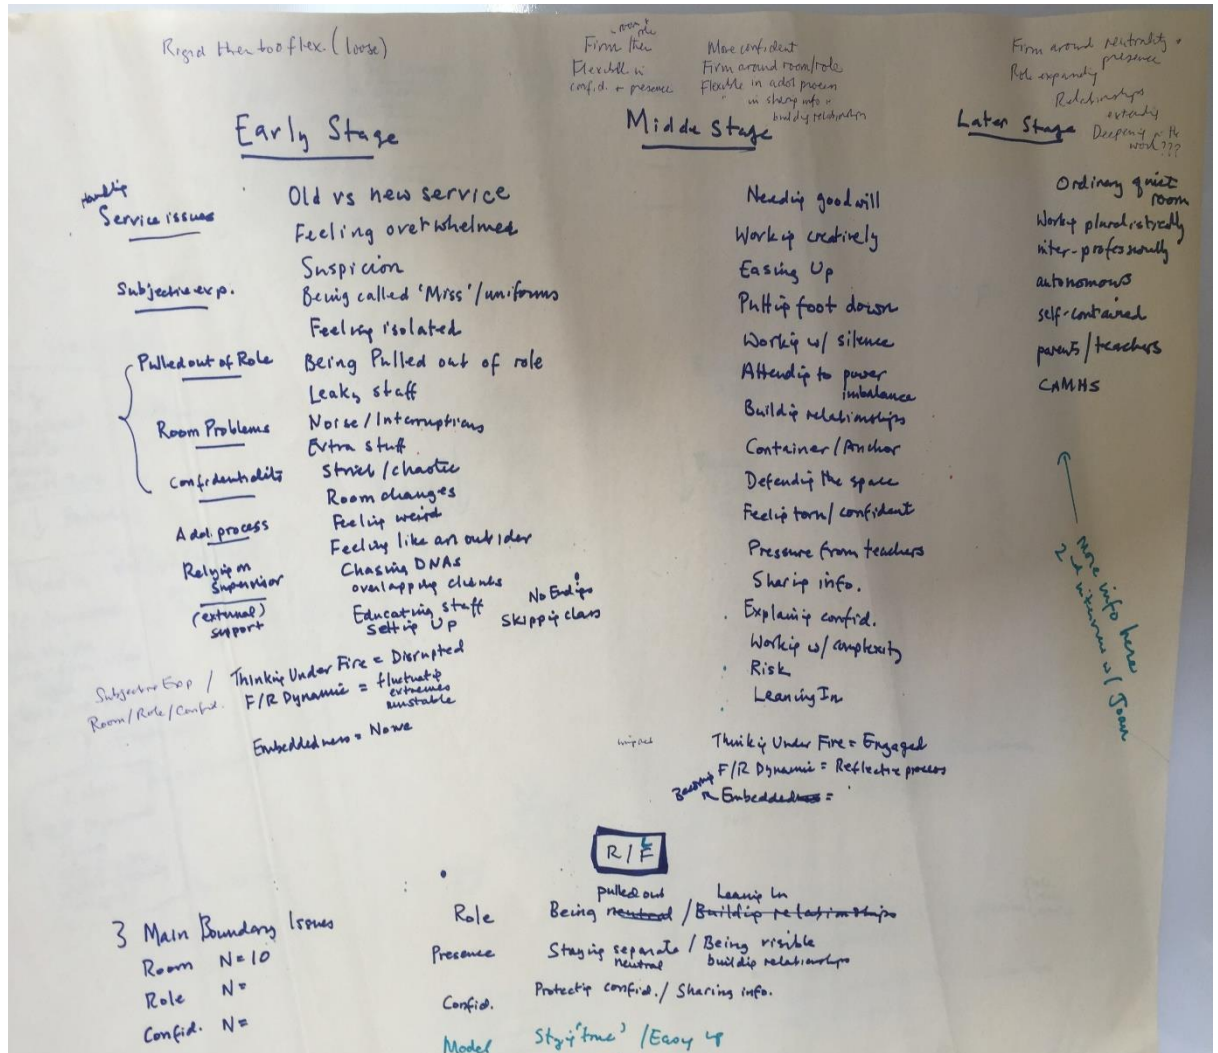 Rigid then too flex (loose)
room &
role
Firm then
Flexible in
confid. + presence
More confident
Firm around room/role
Flexible in adol process
" in sharing info "
building relationships
Firm around neutrality +
presence
Role expanding
Relationships
extending
Deepening in the
work???
Early Stage
Middle Stage
Later Stage
Handling
Service issues
Subjective exp.
Pulled out of Role
Room Problems
Confidentiality
Adol. process
Relying on
Supervisor
(external)
support
Old vs new service
Feeling overwhelmed
Suspicion
Being called 'Miss'/uniforms
Feeling isolated
Being Pulled out of role
Leaky staff
Noise/Interruptions
Extra stuff
Strict/chaotic
Room changes
Feeling weird
Feeling like an outsider
Chasing DNAs
overlapping clients
Educating staff
Setting Up
No Endings
Skipping class
Subjective Exp /
Room/Role/Confid.
Thinking Under Fire = Disrupted
F/R Dynamic = fluctuating
extremes
unstable
Embeddedness = None
Needing goodwill
Working creatively
Easing Up
Putting foot down
Working w/ silence
Attending to power
imbalance
Building relationships
Container/Anchor
Defending the space
Feeling torn/confident
Pressure from teachers
Sharing info.
Explaining confid.
Working w/ complexity
Risk
Leaning In
impact
Thinking Under Fire = Engaged
F/R Dynamic = Reflective process
Becoming
Embeddedness =
Ordinary quiet
room
Working pluralistically
inter-professionally
autonomous
self-contained
parents/teachers
CAMHS
more info here
2nd interview w/ Joan
R/F
L
3 Main Boundary Issues
Room N=10
Role N=
Confid. N=
pulled out Leaning In
Role Being neutral / Building relationships
Presence Staying separate / Being visible
neutral building relationships
Confid. Protecting confid. / Sharing info.
Model Staying 'true' / Easing up